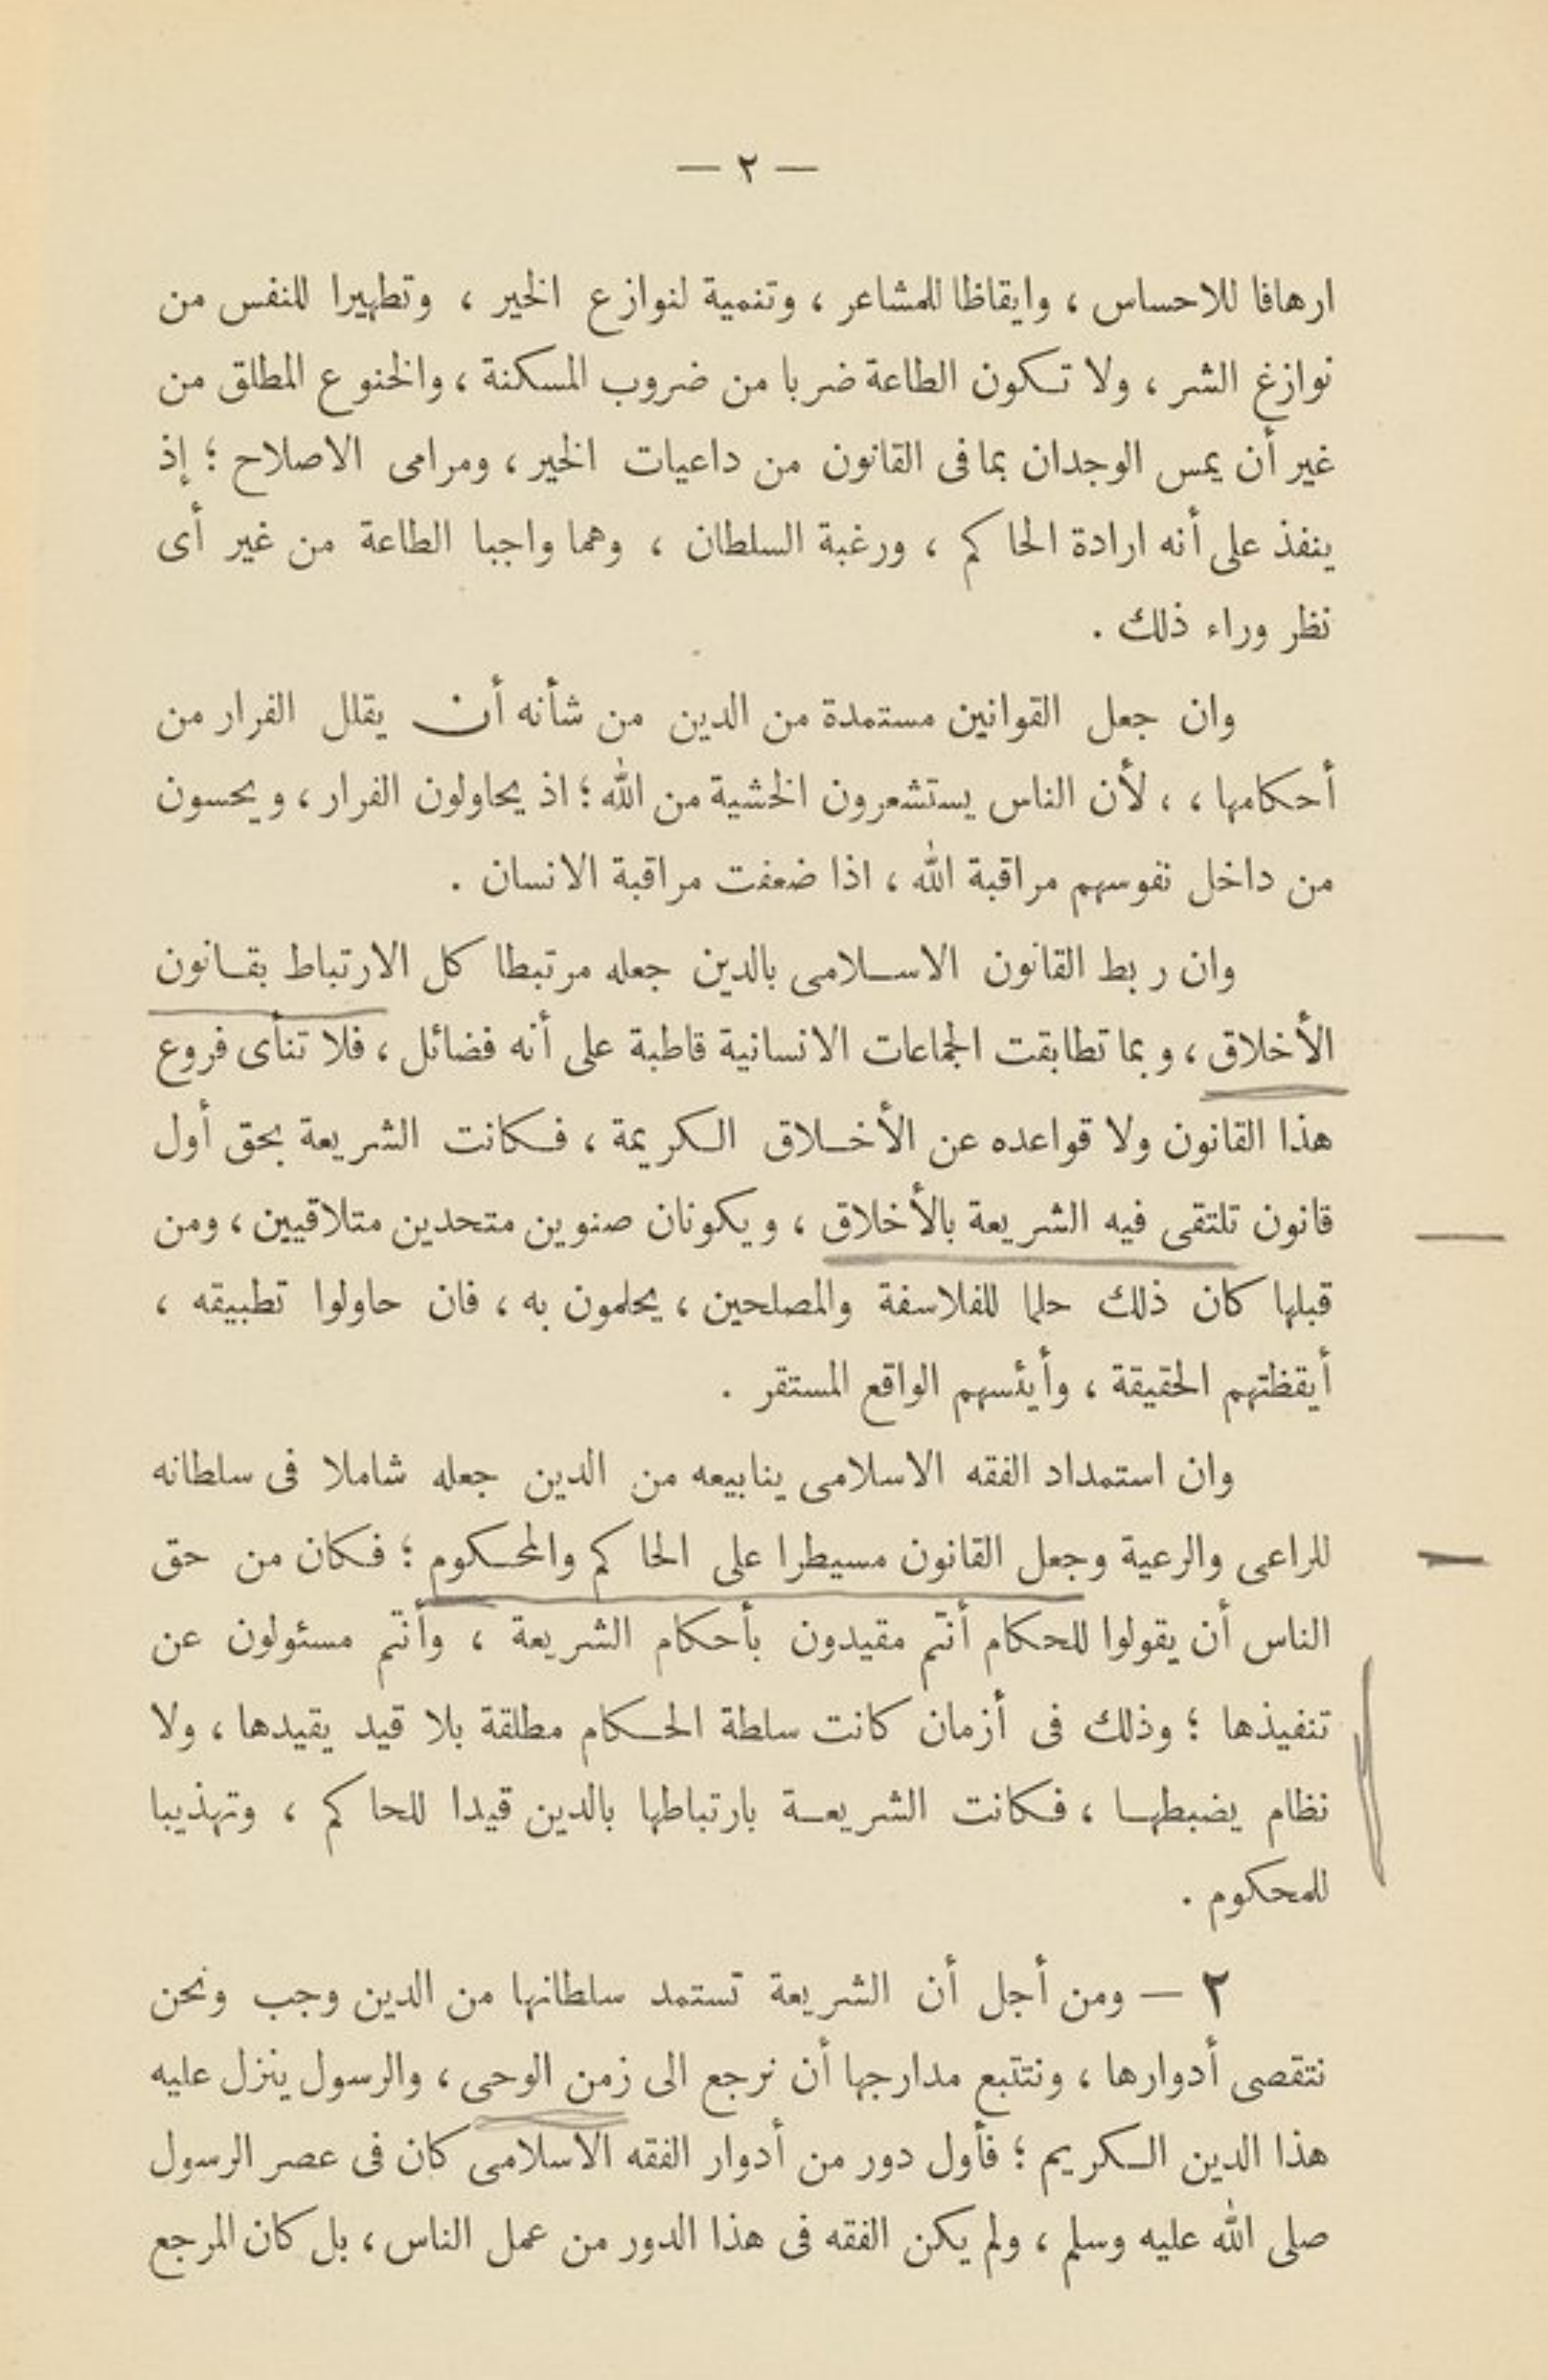 — ٢ —
ارهافا للاحساس ، وايقاظا للمشاعر ، وتنمية لنوازع الخير ، وتطهيرا للنفس من
نوازغ الشر ، ولا تكون الطاعة ضربا من ضروب المسكنة ، والخنوع المطلق من
غير أن يمس الوجدان بما فى القانون من داعيات الخير ، ومرامى الاصلاح ؛ إذ
ينفذ على أنه ارادة الحاكم ، ورغبة السلطان ، وهما واجبا الطاعة من غير أى
نظر وراء ذلك .
وان جعل القوانين مستمدة من الدين من شأنه أن يقلل الفرار من
أحكامها ، ، لأن الناس يستشعرون الخشية من الله ؛ اذ يحاولون الفرار ، ويحسون
من داخل نفوسهم مراقبة الله ، اذا ضعفت مراقبة الانسان .
وان ربط القانون الاسلامى بالدين جعله مرتبطا كل الارتباط بقانون
الأخلاق ، وبما تطابقت الجماعات الانسانية قاطبة على أنه فضائل ، فلا تنأى فروع
هذا القانون ولا قواعده عن الأخلاق الكريمة ، فكانت الشريعة بحق أول
قانون تلتقى فيه الشريعة بالأخلاق ، ويكونان صنوين متحدين متلاقيين ، ومن
قبلها كان ذلك حلما للفلاسفة والمصلحين ، يحلمون به ، فان حاولوا تطبيقه ،
أيقظتهم الحقيقة ، وأيئسهم الواقع المستقر .
وان استمداد الفقه الاسلامى ينابيعه من الدين جعله شاملا فى سلطانه
للراعى والرعية وجعل القانون مسيطرا على الحاكم والمحكوم ؛ فكان من حق
الناس أن يقولوا للحكام أنتم مقيدون بأحكام الشريعة ، وأنتم مسئولون عن
تنفيذها ؛ وذلك فى أزمان كانت سلطة الحكام مطلقة بلا قيد يقيدها ، ولا
نظام يضبطها ، فكانت الشريعة بارتباطها بالدين قيدا للحاكم ، وتهذيبا
للمحكوم .
٢ — ومن أجل أن الشريعة تستمد سلطانها من الدين وجب ونحن
نتقصى أدوارها ، ونتتبع مدارجها أن نرجع الى زمن الوحى ، والرسول ينزل عليه
هذا الدين الكريم ؛ فأول دور من أدوار الفقه الاسلامى كان فى عصر الرسول
صلى الله عليه وسلم ، ولم يكن الفقه فى هذا الدور من عمل الناس ، بل كان المرجع